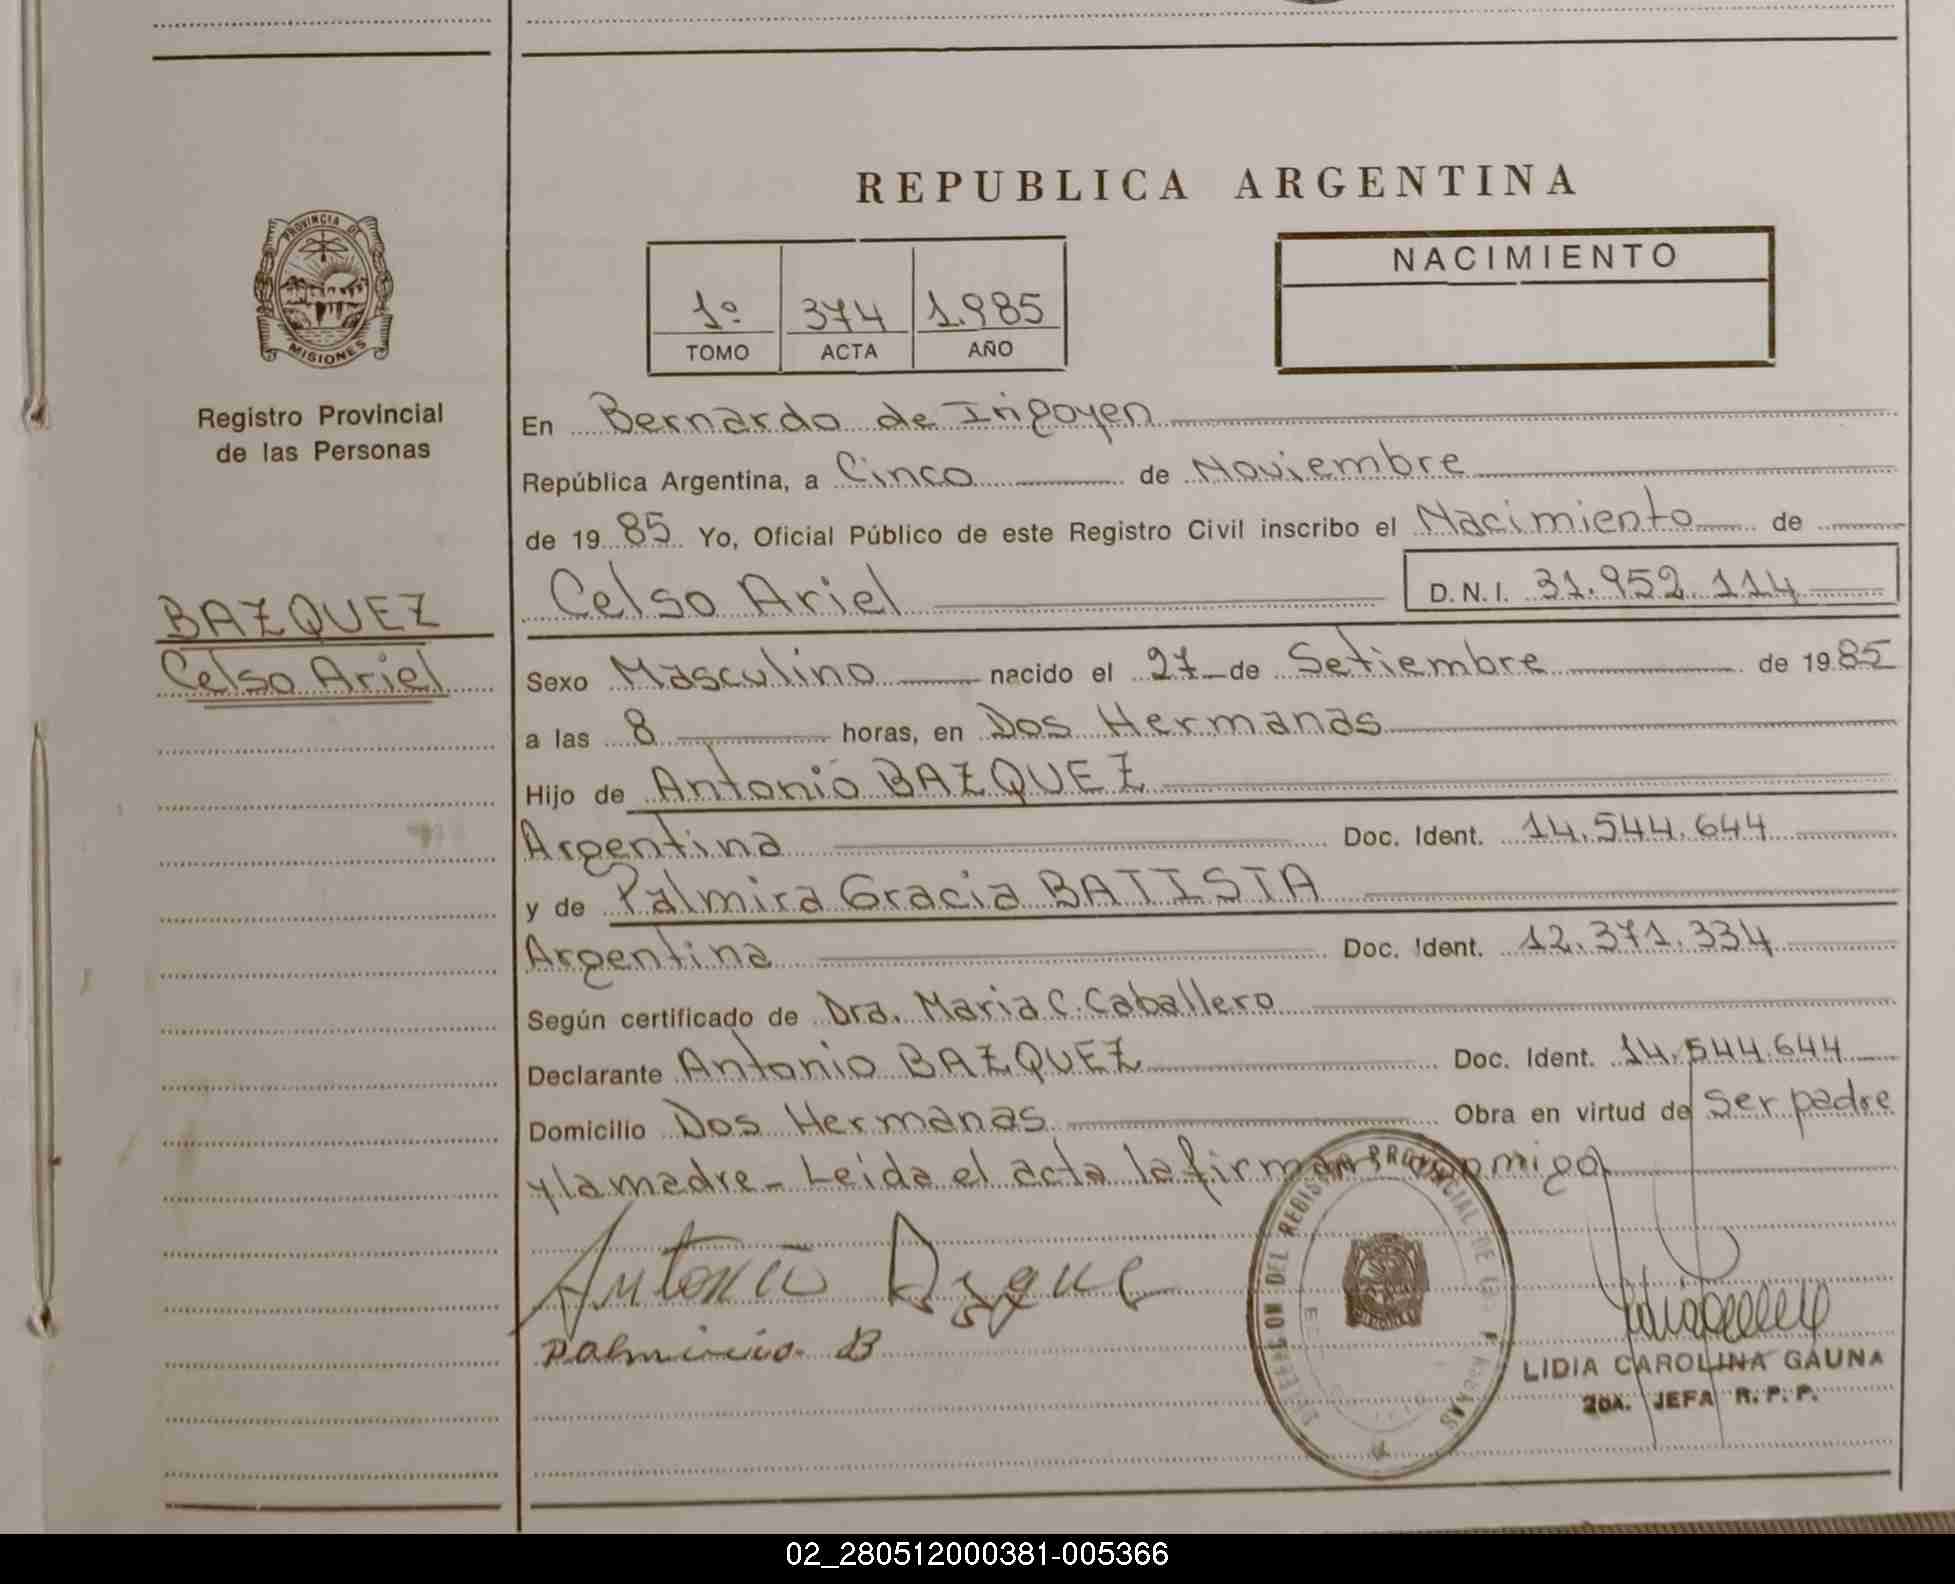 REPUBLICA ARGENTINA
PROVINCIA DE
MISIONES
Registro Provincial
de las Personas
1º 374 1.985
TOMO ACTA AÑO
NACIMIENTO
En Bernardo de Irigoyen
República Argentina, a Cinco de Noviembre
de 19 85 Yo, Oficial Público de este Registro Civil inscribo el Nacimiento de
Celso Ariel D.N.I. 31.952.114
BAZQUEZ
Celso Ariel
Sexo Masculino nacido el 27 de Setiembre de 1985
a las 8 horas, en Dos Hermanas
Hijo de Antonio BAZQUEZ
Argentina Doc. Ident. 14.544.644
y de Palmira Gracia BATISTA
Argentina Doc. Ident. 12.371.334
Según certificado de Dra. Maria C. Caballero
Declarante Antonio BAZQUEZ Doc. Ident. 14.544.644
Domicilio Dos Hermanas Obra en virtud de Ser padre
y la madre - Leida el acta la firman conmigo
Antonio
B
DEL REGISTRO PROVINCIAL DE LAS
LIDIA CAROLINA GAUNA
2DA. JEFA R.P.P.
02_280512000381-005366